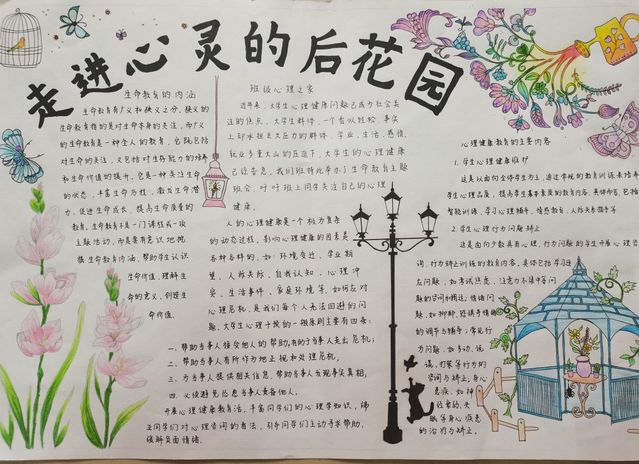 走进心灵的后花园
生命教育的内涵
生命教育有广义和狭义之分，狭义的
生命教育指的是对生命本身的关注，而广义
的生命教育是一种全人的教育，它既包括
对生命的关注，又包括对生存能力的培养
和生命价值的提升。它是一种关注生命
的状态，丰富生命历程，激发生命潜
力，促进生命成长，提高生命质量的
教育。生命教育不是一门课程或一项
主题活动，而是要有意识地挖
掘生命教育内涵，帮助学生认识
生命价值，理解生
命的意义，创造生
命价值。
班级心理之家
近年来，大学生心理健康问题已成为社会关
注的热点，大学生群体，一个看似轻松，事实
上却承担巨大压力的群体，学业、生活、感情、
就业多重大山的压迫下，大学生的心理健康
已经告急，我们班特此举办了生命教育主题
班会，呼吁班上同学关注自己的心理
健康。
人的心理健康是一个极为复杂
的动态过程，影响心理健康的因素是
各种各样的，如：环境变迁、学业期
望、人际关系、自我认知、心理冲
突、生活事件、家庭环境等，如何应对
心理危机，是我们每个人无法回避的问
题，大学生心理干预的一般原则主要有四条：
一、帮助当事人接受他人的帮助，有助于当事人走出危机；
二、帮助当事人有所作为地正视和处理危机；
三、为当事人提供相关信息，帮助当事人发现事实真相，
四、必须避免怂恿当事人责备他人。
开展心理健康教育活，丰富同学们的心理学知识，端
正同学们对心理咨询的看法，引导同学们主动寻求帮助，
缓解负面情绪。
心理健康教育的主要内容
1.学生心理健康维护
这是以面向全体学生为主，通过常规的教育训练来培养
学生心理品质，提高学生基本素质的教育内容，具体内容，包括
智能训练，学习心理辅导，情感教育，人际关系指导等
2.学生心理行为问题矫正
这是面向少数具有心理，行为问题的学生开展心理咨
询，行为矫正训练的教育内容，具体包括学习适
应问题，如考试焦虑，注意力不集中等问
题的咨询和调适，情绪问
题，如抑郁，恐惧等情绪
的调节与辅导；常见行
为问题，如多动，说
谎，打架等行为的
咨询与矫正；身心
疾，如神
经官能，失
眠等身心疾患
的治疗与矫正。